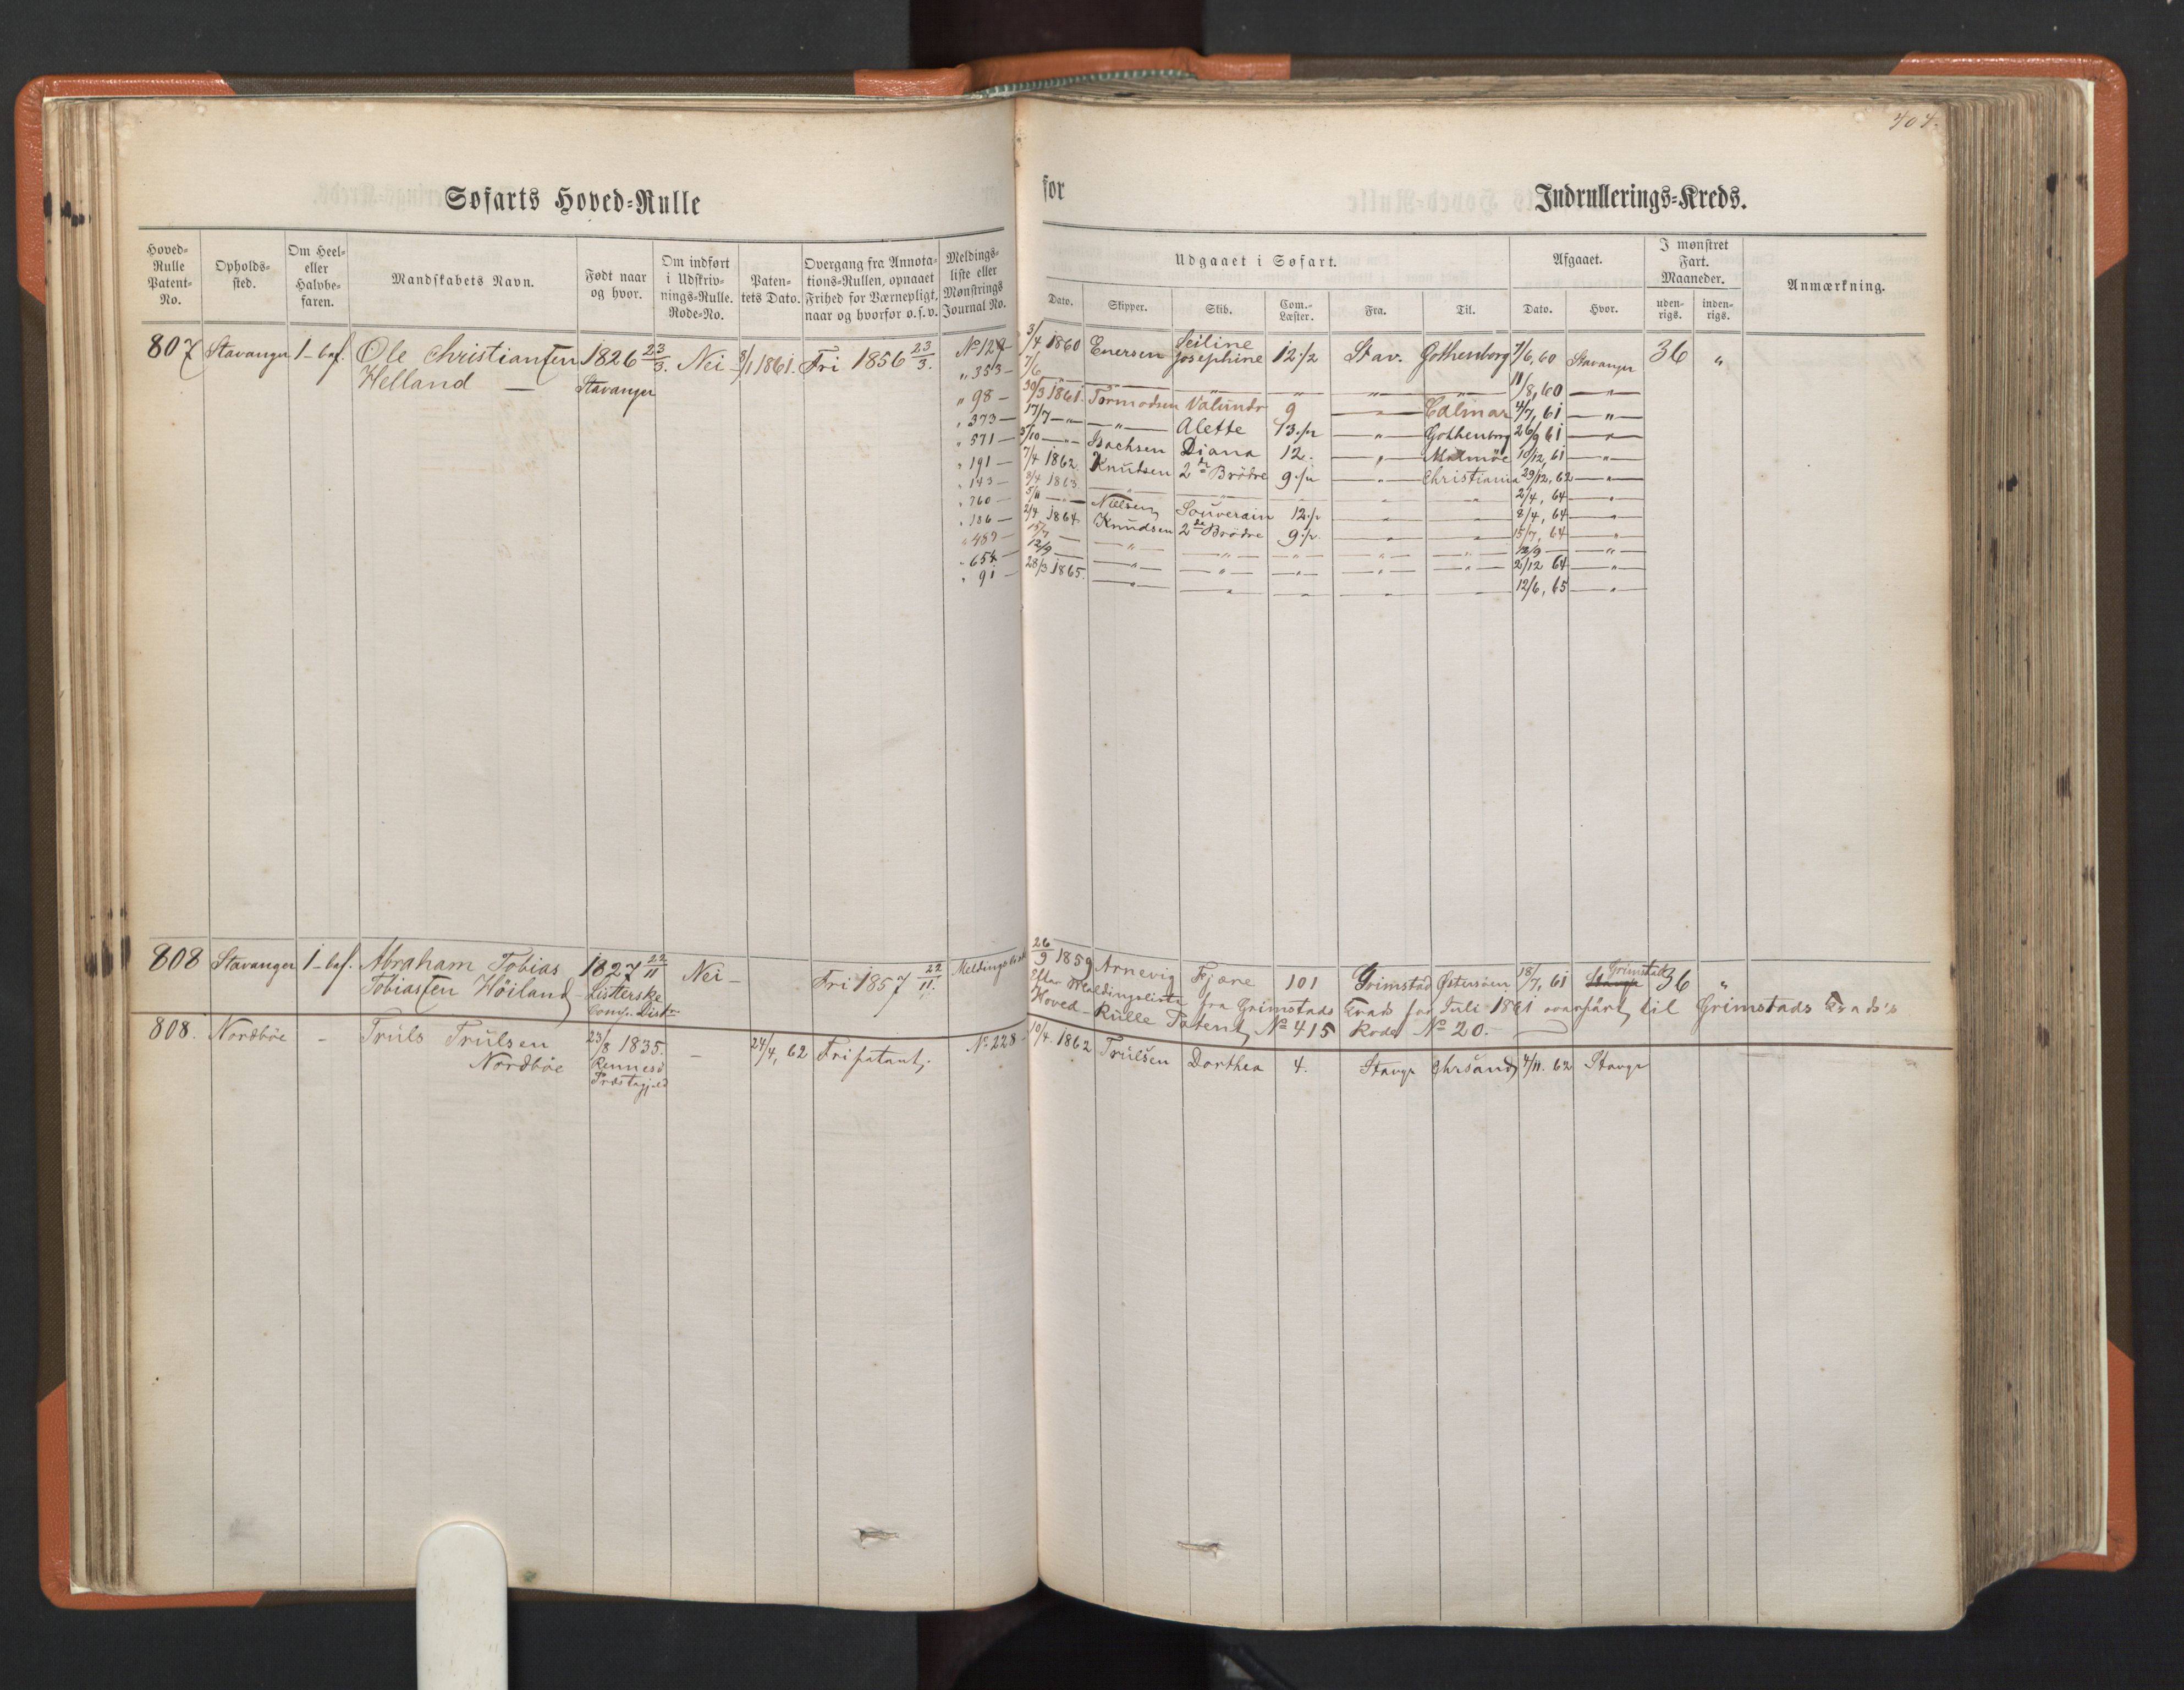 404.
Søfarts Hoved-Rulle
for Indrullerings-Kreds.
Hoved-Rulle Patent-No. Opholds-sted. Om Heel- eller Halvbe-faren. Mandskabets Navn. Født naar og hvor. Om indført i Udskriv-nings-Rulle. Rode-No. Paten-tets Dato. Overgang fra Annota-tions-Rullen, opnaaet Frihed for Værnepligt, naar og hvorfor o.s.v. Meldings-liste eller Mønstrings Journal No.
Udgaaet i Søfart. Afgaaet. I mønstret Fart. Maaneder. Anmærkning.
Dato. Skipper. Skib. Com.-Læster. Fra. Til. Dato. Hvor. uden-rigs. inden-rigs.
807 Stavanger 1-bef. Ole Christiansen 1826 23/3. Nei - 8/1 1861. Fri 1856 23/3. No 127 3/4 1860 Enersen Seiline Josephine 12 1/2 Stav. Gothenborg 7/6, 60 Stavanger 36 "
Helland — Stavanger
" 353 — 7/6 — " — " — " — " — " 11/8, 60 — " —
" 98 — 30/3 1861. Tormodsen Valundr 9 — " — Calmar 4/7, 61 — " —
" 373 — 17/7 — " — — " — Alette 13 1/2 — " — Gothenborg 26/9 61 — " —
" 571 — 3/10 — " — Isachsen Diana 12. — " — Malmöe 10/12, 61 — " —
" 191 — 7/4 1862. Knutsen 2de Brödre 9 1/2 — " — Christiania 29/12, 62 — " —
" 143 — 9/4 1863. — " — " — " — " — " 2/4, 64 — " —
" 760 — 5/11 — " — Nielsen Souverain 12 1/2 — " — " 8/4, 64 — " —
" 186 — 2/4 1864 Knudsen 2de Brödre 9 1/2 — " — " 15/7, 64 — " —
" 489 — 15/7 — — " — " — " — " — " 12/9 — — " —
" 654 — 12/9 — — " — " — " — " — " 2/12 64 — " —
" 91 — 28/3 1865. — " — " — " — " — " 12/6, 65 — " —
808 Stavanger 1-bef. Abraham Tobias 1827 22/11 Nei - Fri 1857 22/11. Meldingsliste 26/9 1859 Arnevig Fjære 101 Grimstad Østersøen 18/7, 61 Stavgr Grimstad 36 "
Tobiassen Höiland Listerske
Comp. Distr.
Efter Meldingsliste fra Grimstads Krads for Juli 1861 overført til Grimstads Krads's
Hoved-Rulle Patent No 415 Rode No 20. —
808. Nordbøe - Truls Trulsen 23/8 1835. — 24/4, 62 Fripatent. No. 228 10/4. 1862 Trulsen Dorthea 4. Stavgr Chrsand 4/11. 62 Stavgr
Nordbøe Rennesø
Præstegjeld